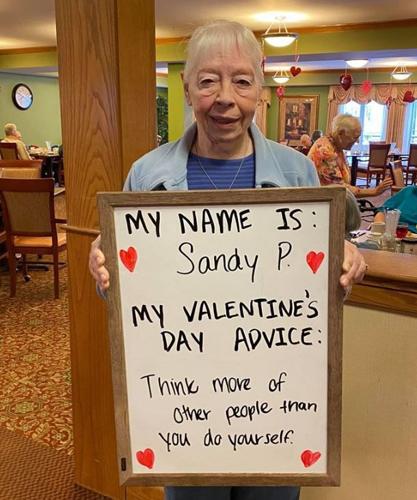 MY NAME IS:
Sandy P.
MY VALENTINE'S
DAY ADVICE:
Think more of
other people than
you do yourself.